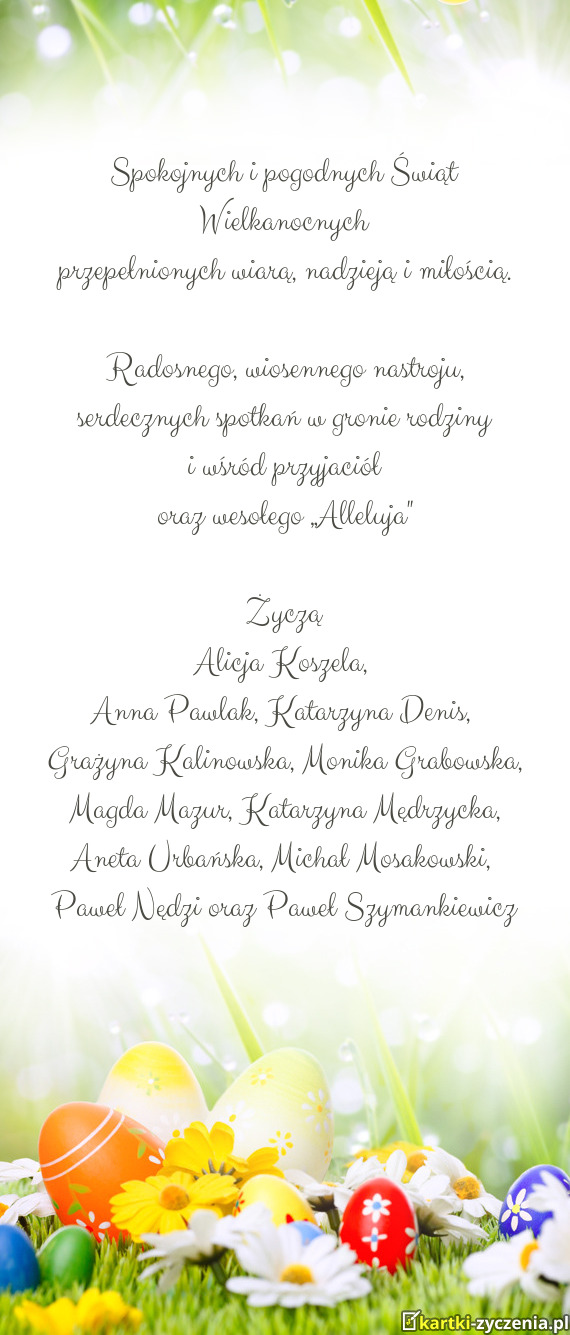 Spokojnych i pogodnych Świąt
Wielkanocnych
przepełnionych wiarą, nadzieją i miłością.
Radosnego, wiosennego nastroju,
serdecznych spotkań w gronie rodziny
i wśród przyjaciół
oraz wesołego „Alleluja"
Życzą
Alicja Koszela,
Anna Pawlak, Katarzyna Denis,
Grażyna Kalinowska, Monika Grabowska,
Magda Mazur, Katarzyna Mędrzycka,
Aneta Urbańska, Michał Mosakowski,
Paweł Nędzi oraz Paweł Szymankiewicz
kartki-zyczenia.pl